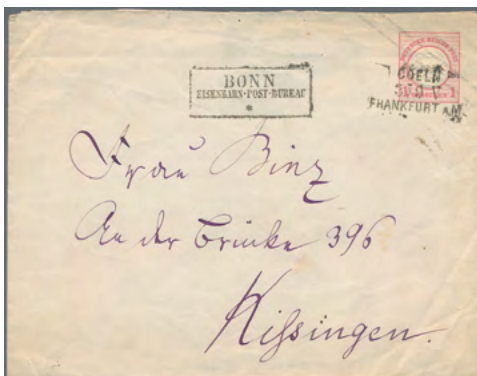 BONN
EISENBAHN-POST-BUREAU
*
COELN
FRANKFURT a.M
1
Frau Binz
An der Brücke 396
Kissingen.